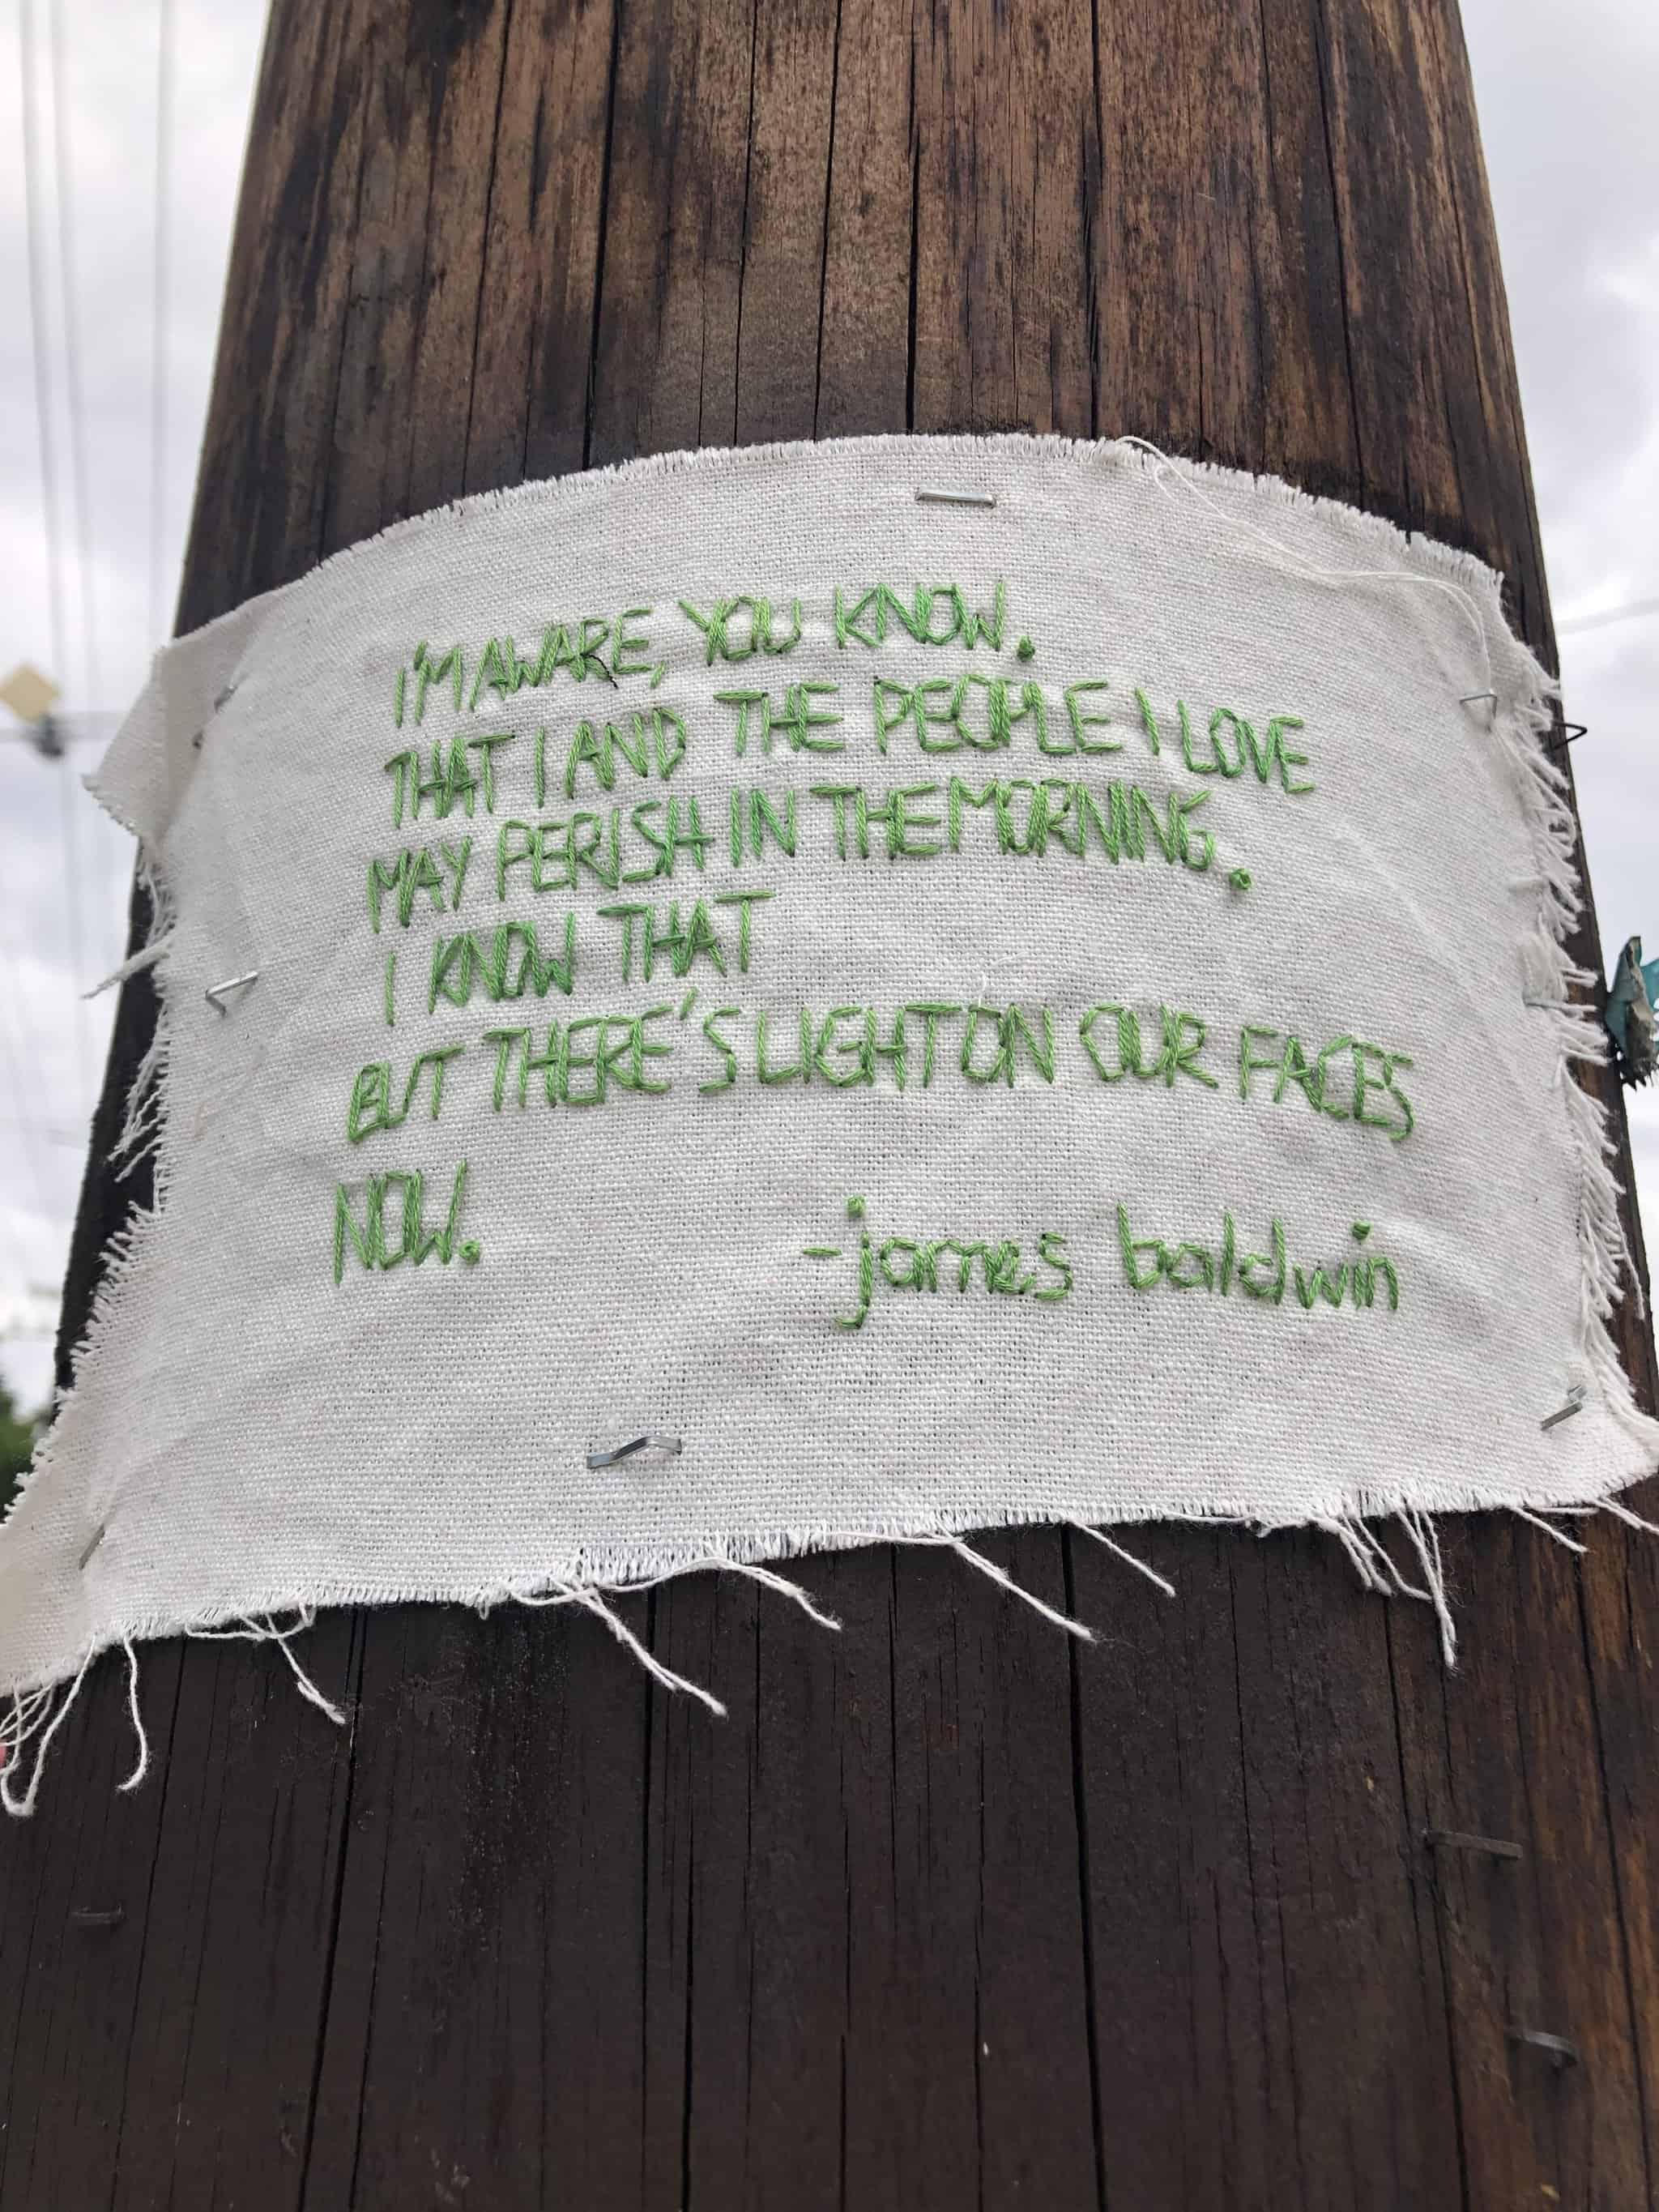 I'M AWARE, YOU KNOW.
THAT I AND THE PEOPLE I LOVE
MAY PERISH IN THE MORNING.
I KNOW THAT
BUT THERE'S LIGHT ON OUR FACES
NOW.
-james baldwin